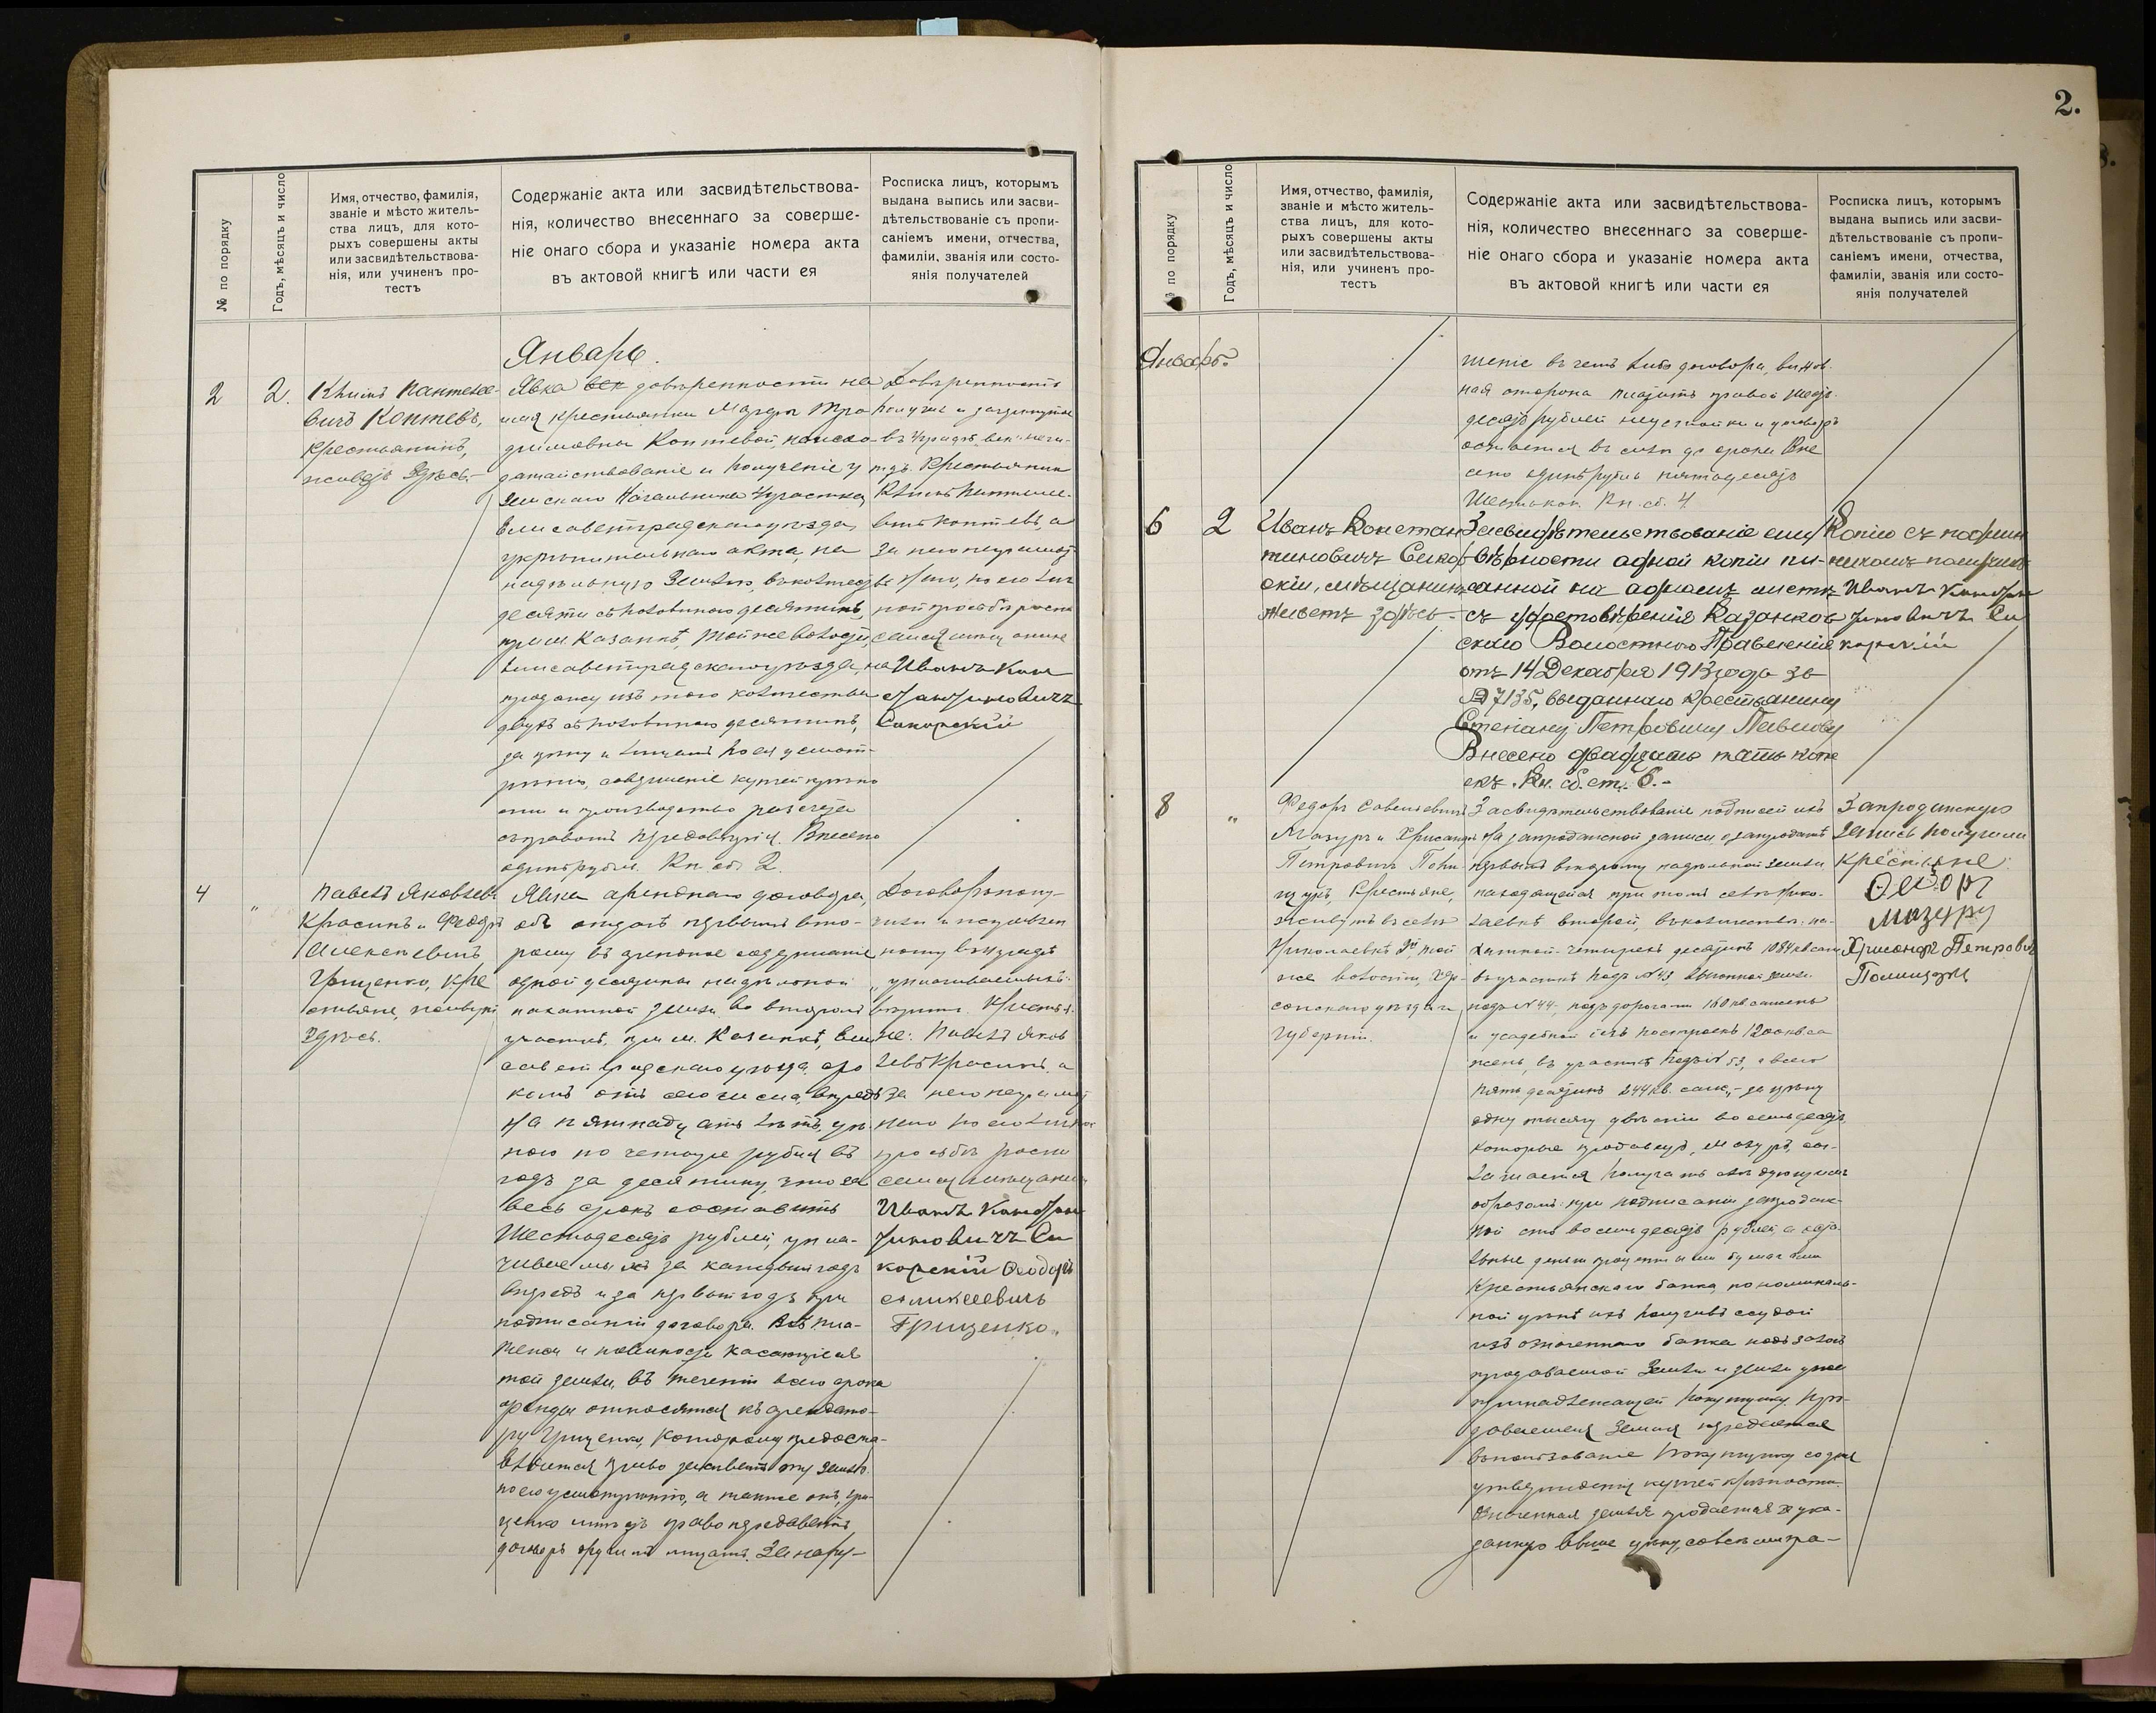 2.
№ по порядку
Годъ, мѣсяцъ и число
Имя, отчество, фамилія,
званіе и мѣсто житель-
ства лицъ, для кото-
рыхъ совершены акты
или засвидѣтельствова-
нія, или учиненъ про-
тестъ
Содержаніе акта или засвидѣтельствова-
нія, количество внесеннаго за соверше-
ніе онаго сбора и указаніе номера акта
въ актовой книгѣ или части ея
Росписка лицъ, которымъ
выдана выпись или засви-
дѣтельствованіе съ пропи-
саніемъ имени, отчества,
фамиліи, званія или состо-
янія получателей
Январь.
2
2.
Коптевъ,
крестьянинъ,
Явка довѣренности на
имя крестьянки Марфы Тро
фимовны Коптевой, на исхо-
датайствованіе и полученіе у
Земскаго Начальника участка,
Елисаветградскаго уѣзда,
укрѣпительнаго акта, на
надѣльную Землю, въ количес
десяти съ половиною десятинъ,
при м. Казанкѣ, той же волости,
Елисаветградскаго уѣзда, на
продажу изъ того количества
двухъ съ половиною десятинъ,
за цѣну и лицамъ по ея усмот-
рѣнію, совершеніе купчей крѣпо
сти и производство разсчета
съ правомъ передовѣрія. Внесено
одинъ рубль. Кн. сб. 2.
Довѣренность
получилъ и
Иванъ Кон
стантиновичъ
Сикорскій
4
"
Павелъ Яковлевъ
Красинъ и Федоръ
Алексѣевичъ
Гриценко, кре
стьяне, живутъ
здѣсь.
Явка аренднаго договора,
объ отдачѣ первымъ вто-
рому въ арендное содержаніе
одной десятины надѣльной
пахатной земли, во второмъ
участкѣ, при м. Казанкѣ, Ели
саветградскаго уѣзда, сро
комъ отъ сего числа, впредь
на пятнадцать лѣтъ, цѣ-
ною по четыре рубля въ
годъ за десятину, что за
весь срокъ составитъ
Шестьдесятъ рублей, упла-
чиваемыхъ за каждый годъ
впередъ и за первый годъ при
подписаніи договора. Всѣ пла-
тежи и повинности касающіеся
той земли, въ теченіи всего срока
аренды относятся къ арендато-
ру Гриценко, которому предоста-
вляется право засѣвать эту землю
по его усмотрѣнію, а также онъ, Гри-
ценко имѣетъ право передавать
договоръ другимъ лицамъ. За нару-
Договоръ полу-
чили и
Крестья
не: Павелъ Яков
левъ Красинъ, а
за него неграмот
наго по его личной
просьбѣ роспи
сался мѣщанинъ
Иванъ Констан
тиновичъ Си
корскій Ѳеодоръ
Аликсѣевичъ
Гриценко.
№ по порядку
Годъ, мѣсяцъ и число
Имя, отчество, фамилія,
званіе и мѣсто житель-
ства лицъ, для кото-
рыхъ совершены акты
или засвидѣтельствова-
нія, или учиненъ про-
тестъ
Содержаніе акта или засвидѣтельствова-
нія, количество внесеннаго за соверше-
ніе онаго сбора и указаніе номера акта
въ актовой книгѣ или части ея
Росписка лицъ, которымъ
выдана выпись или засви-
дѣтельствованіе съ пропи-
саніемъ имени, отчества,
фамиліи, званія или состо-
янія получателей
Январь
шеніе въ чемъ либо договора, винов
ная сторона платитъ правой шесть
десятъ рублей неустойки и договоръ
остается въ силѣ до срока. Вне
сено одинъ рубль пятьдесятъ
Шесть коп. Кн. сб. 4
6
2
Иванъ Констан
тиновичъ Сикор
скій, мѣщанинъ
живетъ здѣсь
Засвидѣтельствованіе ему
вѣрности одной копіи пи-
санной на одномъ листѣ
съ удостовѣренія Казанков
скаго Волостного Правленія
отъ 14 Декабря 1913 года за
№ 7135, выданнаго крестьянину
Степану Петровичу Павлову
Внесено двадцать пять копѣ
екъ. Кн. сб. ст. 6.-
Копію съ подлин
никомъ получилъ
Иванъ Констан
тиновичъ Си
корскій
8
"
Федоръ Савельевичъ
Мазуръ и Хрисанфъ
Петровичъ
крестьяне,
живутъ въ селѣ
Николаевкѣ 2й, той
же волости, Хер-
сонскаго уѣзда и
губерніи.
Засвидѣтельствованіе подписей ихъ
на запродажной записи, о запродажѣ
первымъ второму надѣльной земли
находящейся при томъ селѣ Нико-
лаевкѣ второй, въ количествѣ: па-
хатной четырехъ десятинъ 1084 кв саж
въ участкѣ подъ № 43, выгонной земли
подъ № 44, подъ дорогами 160 кв сажень
и усадебной безъ построекъ 1200 кв са
жень, въ участкѣ подъ № 53, а всего
пять десятинъ 244 кв. саж., за цѣну
одну тысячу двѣсти восемьдесятъ
которые продавецъ, Мазуръ, сог-
лашается получать слѣдующимъ
образомъ: при подписаніи запродаж-
ной сто восемьдесятъ рублей, а
Крестьянскаго банка, по номиналь-
ной цѣнѣ ихъ получивъ ссудой
изъ означеннаго банка подъ залогъ
продаваемой Земли и земли уже
принадлежащей покупщику. Про-
даваемая Земля передается
въ пользованіе покупщику со дня
утвержденія купчей крѣпости.
Означенная земля продается за ука-
занную выше цѣну, совсѣми пра-
Запродажную
Запись получили
крестьяне
Ѳедоръ
Мазуру
Хрисанфъ Петровичъ